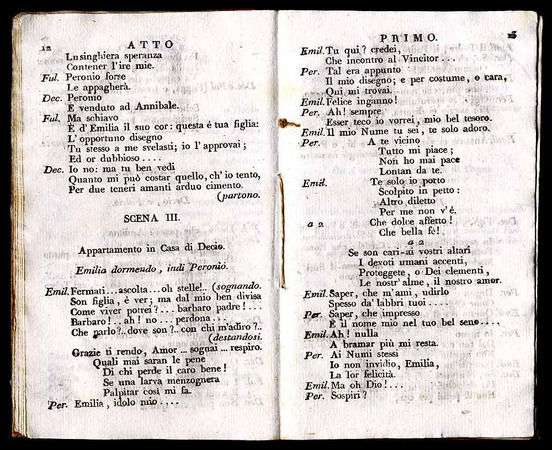 12 ATTO
Lusinghiera speranza
Contener l'ire mie.
Ful. Peronio forse
Le appagherà.
Dec. Peronio
E venduto ad Annibale.
Ful. Ma schiavo
È d'Emilia il suo cor: questa è tua figlia:
L'opportuno disegno
Tu stesso a me svelasti; io l'approvai;
Ed or dubbioso....
Dec. Io no: ma tu ben vedi
Quanto mi può costar quello, ch'io tento,
Per due teneri amanti arduo cimento.
(partono.
SCENA III.
Appartamento in Casa di Decio.
Emilia dormendo, indi Peronio.
Emil. Fermati...ascolta...oh stelle!.. (sognando.
Son figlia, è ver; ma dal mio ben divisa
Come viver potrei?... barbaro padre!...
Barbaro!..ah! no... perdona...
Che parlo?..dove son?..con chi m'adiro?..
(destandosi.
Grazie ti rendo, Amor... sognai... respiro.
Quali mai saran le pene
Di chi perde il caro bene!
Se una larva menzognera
Palpitar così mi fa.
Per. Emilia, idolo mio....
PRIMO. 13
Emil. Tu qui? credei,
Che incontro al Vincitor....
Per. Tal era appunto
Il mio disegno; e per costume, o cara,
Qui mi trovai.
Emil. Felice inganno!
Per. Ah! sempre
Esser teco io vorrei, mio bel tesoro.
Emil. Il mio Nume tu sei, te solo adoro.
Per. A te vicino
Tutto mi piace;
Non ho mai pace
Lontan da te.
Emil. Te solo io porto
Scolpito in petto:
Altro diletto
Per me non v'è.
a 2 Che dolce affetto!
Che bella fe!
a 2
Se son cari ai vostri altari
I devoti umani accenti,
Proteggete, o Dei clementi,
Le nostr'alme, il nostro amor.
Emil. Saper, che m'ami, udirlo
Spesso da' labbri tuoi....
Per. Saper, che impresso
È il nome mio nel tuo bel seno....
Emil. Ah! nulla
A bramar più mi resta.
Per. Ai Numi stessi
Io non invidio, Emilia,
La lor felicità.
Emil. Ma oh Dio!...
Per. Sospiri?